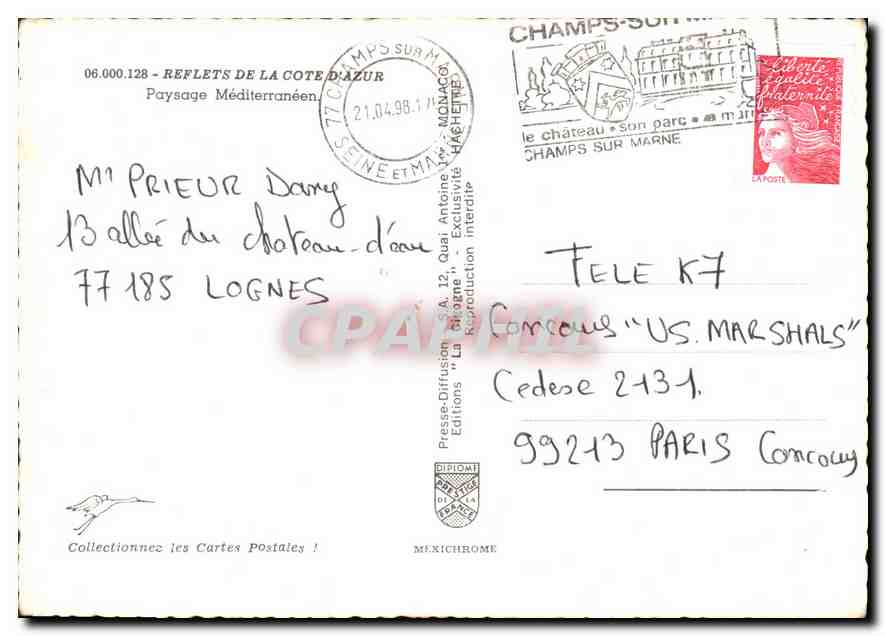 06.000.128 - REFLETS DE LA COTE D'AZUR
Paysage Méditerranéen.
77 CHAMPS SUR MARNE
21.04.98
SEINE ET MARNE
CHAMPS-SUR-M
le château • son parc •
CHAMPS SUR MARNE
liberté
égalité
fraternité
RÉPUBLIQUE FRANÇAISE
LA POSTE
Mr PRIEUR Dany
13 allée du chateau-d'eau
77 185 LOGNES
TELE K7
Concours "US. MARSHALS"
Cedexe 2131.
99213 PARIS Concours
Presse-Diffusion S.A. 12, Quai Antoine 1er MONACO
Editions "La Cigogne" - Exclusivité HACHETTE
Reproduction interdite
CPAPHIL
DIPLOME
PRESTIGE
DE LA
FRANCE
Collectionnez les Cartes Postales !
MEXICHROME